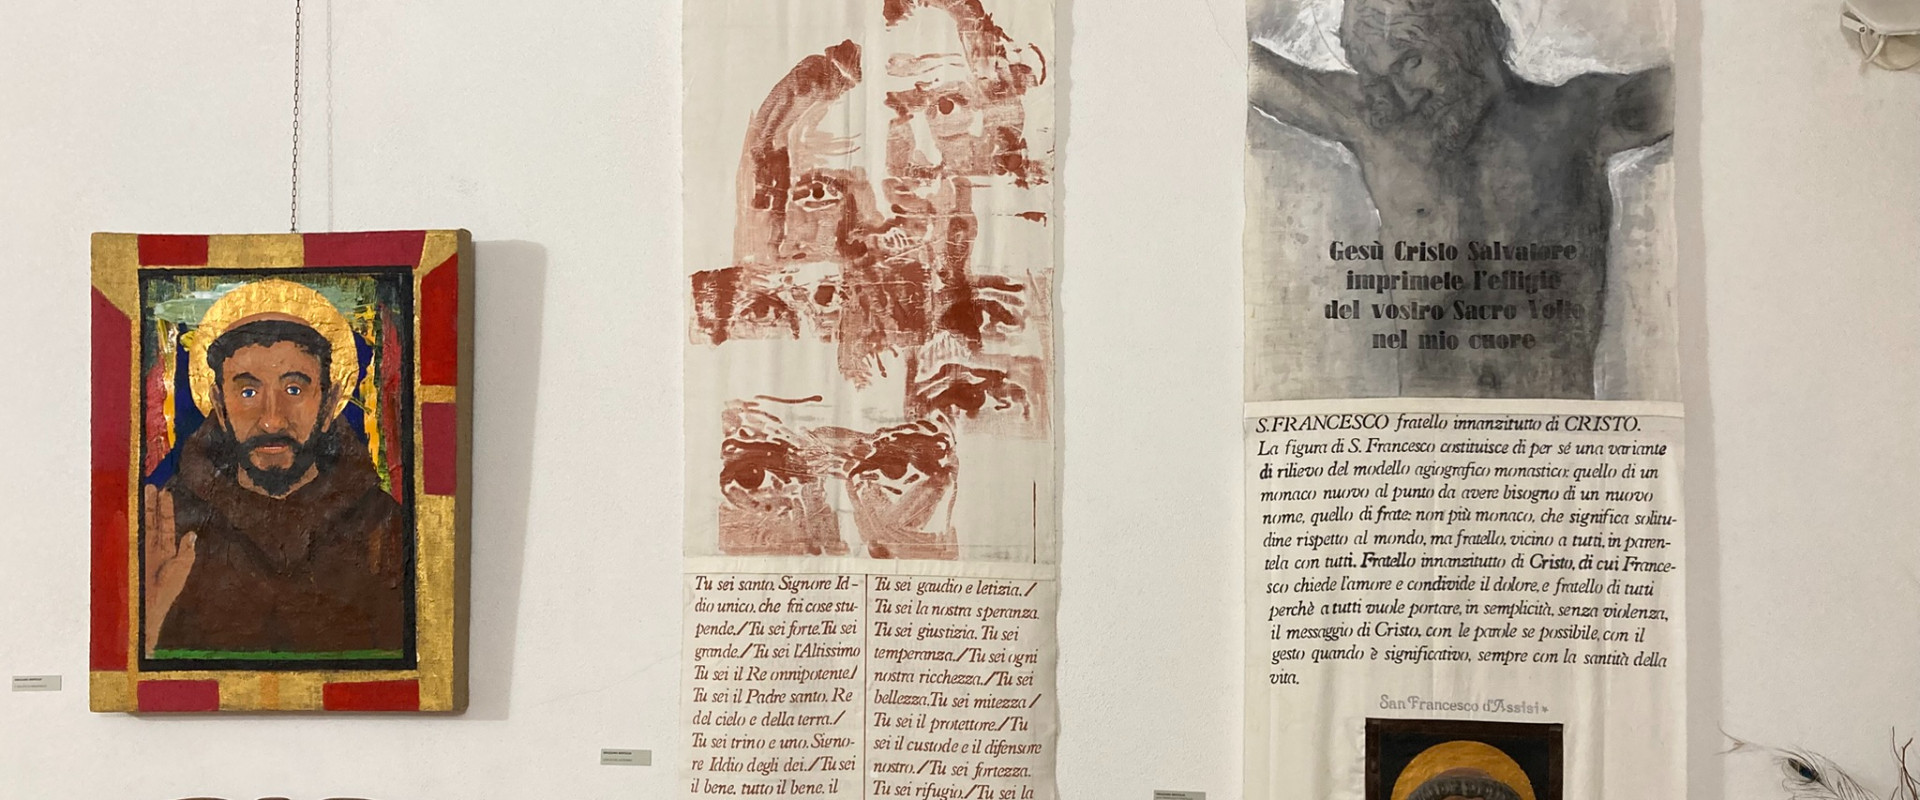 Tu sei santo, Signore Id-
dio unico, che fai cose stu-
pende./Tu sei forte.Tu sei
grande./Tu sei l'Altissimo
Tu sei il Re onnipotente/
Tu sei il Padre santo, Re
del cielo e della terra./
Tu sei trino e uno. Signo-
re Iddio degli dei./Tu sei
il bene, tutto il bene, il
Tu sei gaudio e letizia./
Tu sei la nostra speranza.
Tu sei giustizia. Tu sei
temperanza./Tu sei ogni
nostra ricchezza./Tu sei
bellezza.Tu sei mitezza/
Tu sei il protettore./Tu
sei il custode e il difensore
nostro./Tu sei fortezza.
Tu sei rifugio./Tu sei la
Gesù Cristo Salvatore
imprimete l'effigie
del vostro Sacro Volto
nel mio cuore
S.FRANCESCO fratello innanzitutto di CRISTO.
La figura di S. Francesco costituisce di per sé una variante
di rilievo del modello agiografico monastico: quello di un
monaco nuovo al punto da avere bisogno di un nuovo
nome, quello di frate: non più monaco, che significa solitu-
dine rispetto al mondo, ma fratello, vicino a tutti, in paren-
tela con tutti. Fratello innanzitutto di Cristo, di cui France-
sco chiede l'amore e condivide il dolore, e fratello di tutti
perchè a tutti vuole portare, in semplicità, senza violenza,
il messaggio di Cristo, con le parole se possibile, con il
gesto quando è significativo, sempre con la santità della
vita.
San Francesco d'Assisi*